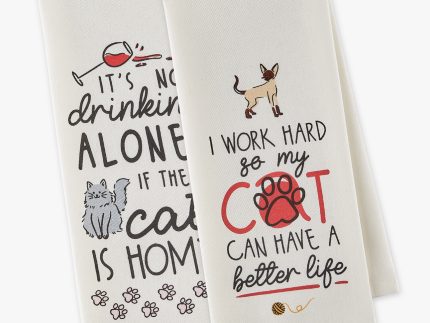 IT'S
drinkin
ALONE
IF THE
cat
IS HOM
I WORK HARD
so my
CAT
CAN HAVE A
better life